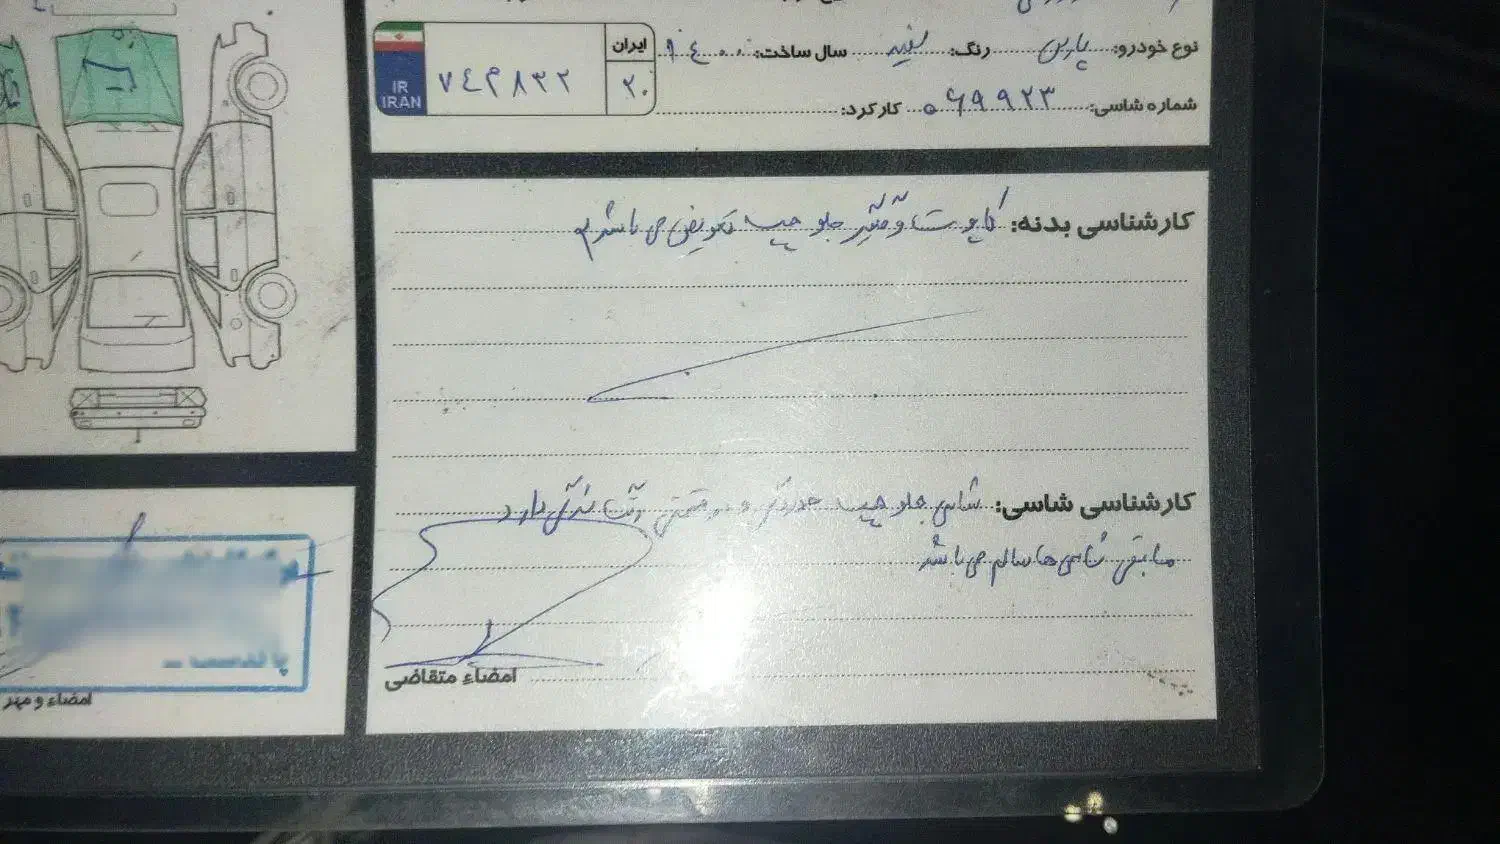 نوع خودرو: پارس رنگ: سفید سال ساخت: ۹۴۰۰
ایران
۲۰
۷۴م۸۳۲
IR
IRAN
شماره شاسی: ۵۶۹۹۲۳ کارکرد:
کارشناسی بدنه: کاپوت و گلگیر جلو چپ تعویض می باشد
کارشناسی شاسی: شاسی جلو چپ خوردگی و در قسمتی دارد
مابقی شاسی ها سالم می باشد
امضاء متقاضی
امضاء و مهر